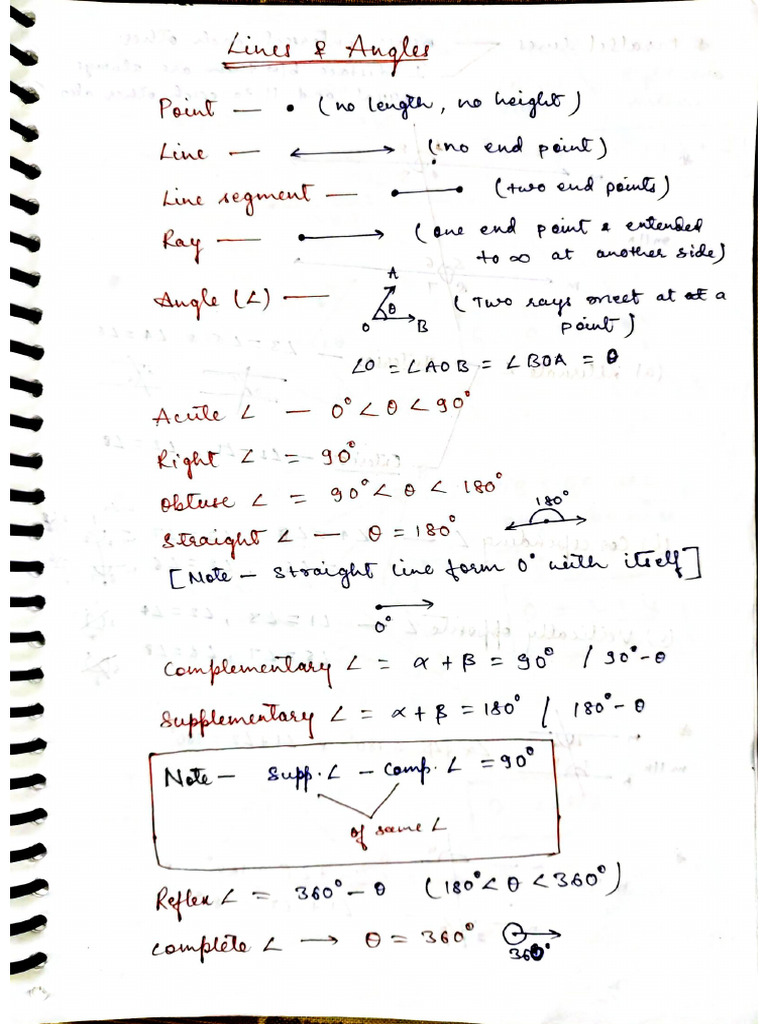 Lines & Angles
Point — • (no length, no height)
Line — (no end point)
Line segment — (two end points)
Ray — (one end point & extended
to ∞ at another side)
Angle (∠) — (Two rays meet at a
point)
A
θ
O B
∠O = ∠AOB = ∠BOA = θ
Acute ∠ — 0° < θ < 90°
Right ∠ = 90°
Obtuse ∠ = 90° < θ < 180°
Straight ∠ — θ = 180° 180°
[Note — Straight line form 0° with itself]
0°
Complementary ∠ = α + β = 90° / 90° - θ
Supplementary ∠ = α + β = 180° / 180° - θ
Note — Supp. ∠ - Comp. ∠ = 90°
of same ∠
Reflex ∠ = 360° - θ (180° < θ < 360°)
Complete ∠ → θ = 360°
360°